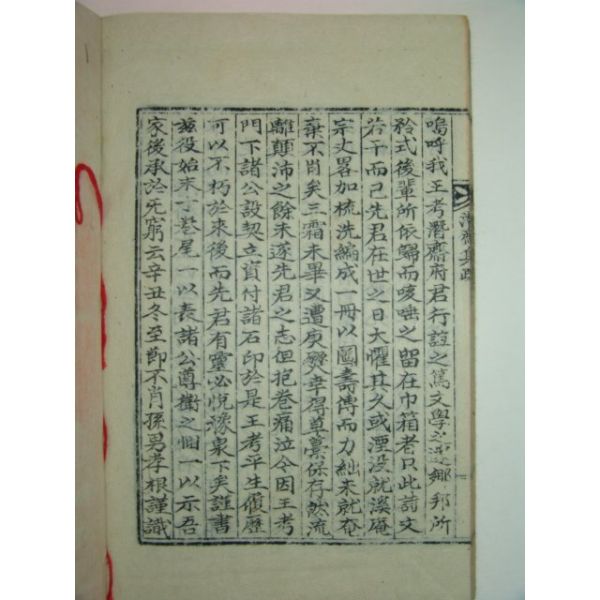 潛齋集跋
一
嗚呼我王考潛齋府君行誼之篤文學之邃鄉邦所
矜式後輩所依歸而咳唾之留在巾箱者只此詩文
若干而已先君在世之日大懼其久或湮沒就溪庵
宗丈畧加梳洗編成一冊以圖壽傳而力絀未就奄
棄不肖矣三霜未畢又遭庚燹幸得草藁保存然流
離顛沛之餘未遂先君之志但抱卷痛泣今因王考
門下諸公設契立資付諸石印於是王考平生履歷
可以不朽於來後而先君有靈必悅豫泉下矣謹書
玆役始末于卷尾一以表諸公尊衛之悃一以示吾
家後承於无窮云辛丑冬至節不肖孫男孝根謹識